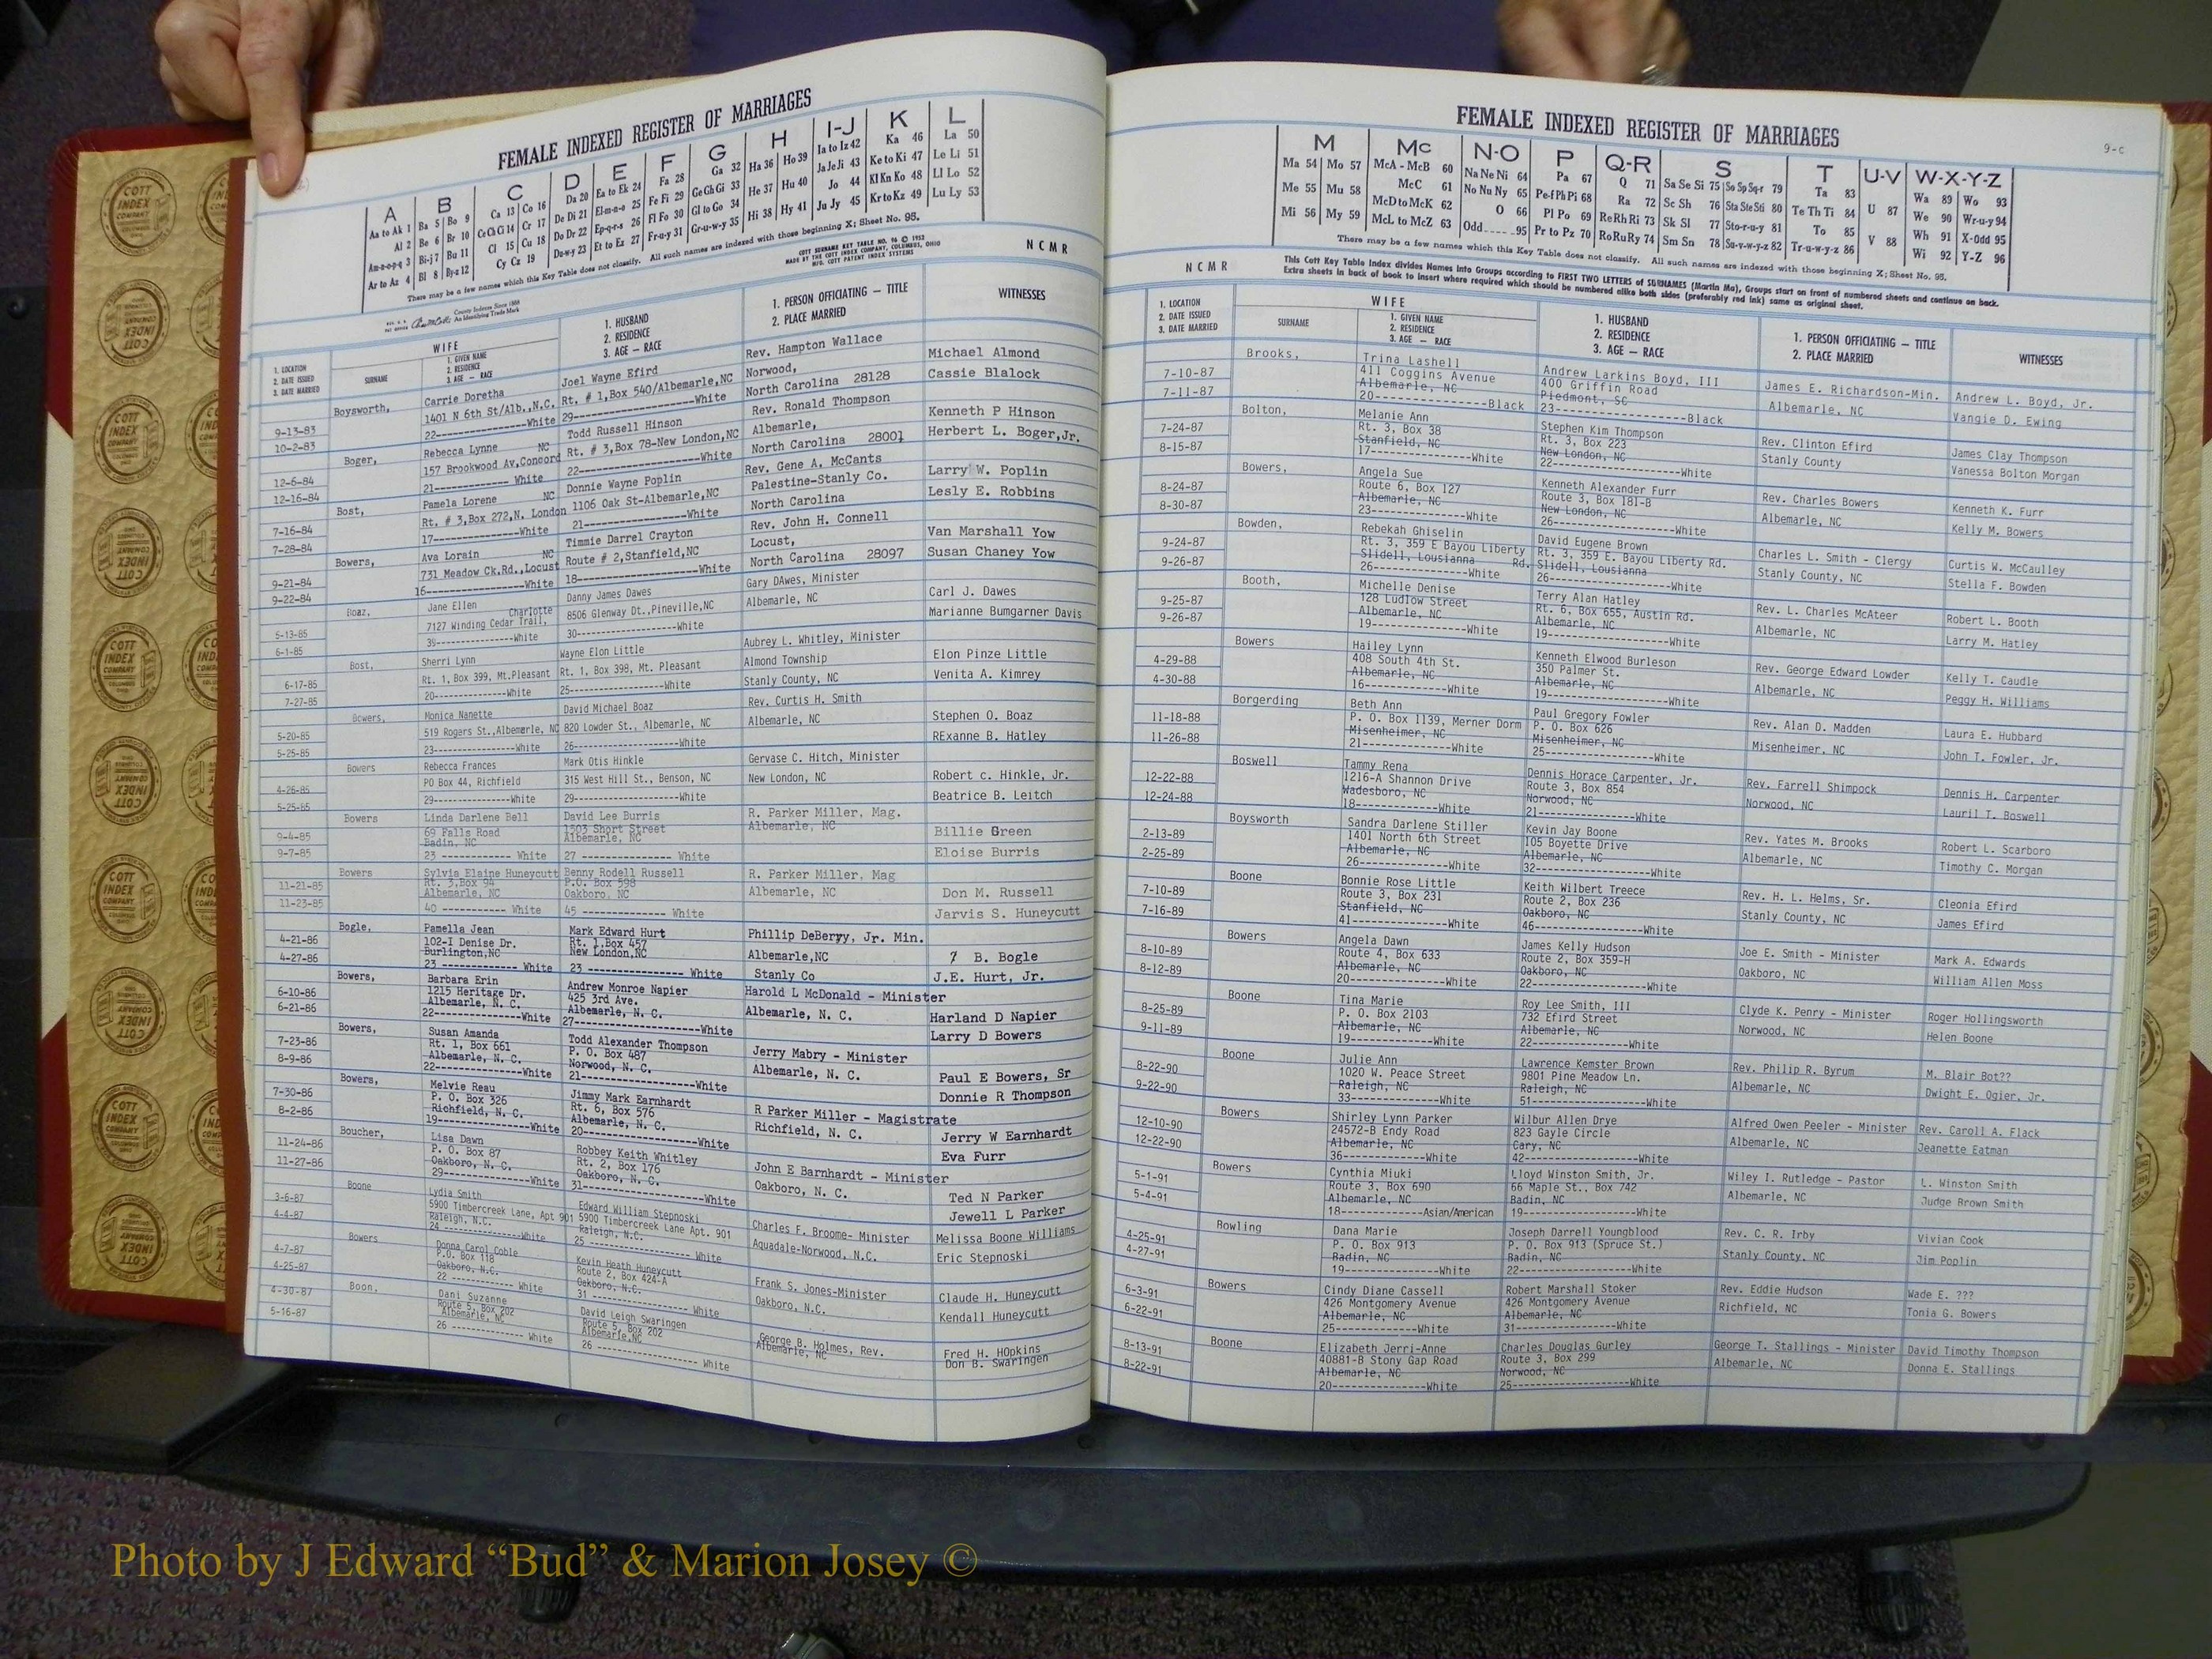 FEMALE INDEXED REGISTER OF MARRIAGES
A B C D E F G H I-J K L
Aa to Ak 1 Ba 5 Bo 9 Ca 13 Co 16 Da 20 Ea to Ek 24 Fa 28 Ga 32 Ha 36 Ho 39 Ia to Iz 42 Ka 46 La 50
Al 2 Be 6 Br 10 Ce Ch Ci 14 Cr 17 De Di 21 El-m-n-o 25 Fe Fi 29 Ge Gh Gi 33 He 37 Hu 40 Ja Je Ji 43 Ke to Ki 47 Le Li 51
Am-n-o-p-q 3 Bi-j 7 Bu 11 Cl 15 Cu 18 Do Dr 22 Ep-q-r-s 26 Fl Fo 30 Gl to Go 34 Hi 38 Hy 41 Jo 44 Kl Kn Ko 48 Ll Lo 52
Ar to Az 4 Bl 8 By-z 12 Cy Cz 19 Du-w-y 23 Et to Ez 27 Fr-u-y 31 Gr-u-w-y 35 Ju Jy 45 Kr to Kz 49 Lu Ly 53
There may be a few names which this Key Table does not classify. All such names are indexed with those beginning X; Sheet No. 95.
COTT SURNAME KEY TABLE NO. 96 © 1953
MADE BY THE COTT INDEX COMPANY, COLUMBUS, OHIO
MFG. COTT PATENT INDEX SYSTEMS
County Indexes Since 1888
An Identifying Trade Mark
N C M R
1. LOCATION
2. DATE ISSUED
3. DATE MARRIED
WIFE
SURNAME
1. GIVEN NAME
2. RESIDENCE
3. AGE — RACE
1. HUSBAND
2. RESIDENCE
3. AGE — RACE
1. PERSON OFFICIATING — TITLE
2. PLACE MARRIED
WITNESSES
Boysworth, Carrie Doretha Joel Wayne Efird Rev. Hampton Wallace Michael Almond
9-13-83 1401 N 6th St/Alb.,N.C. Rt. # 1,Box 540/Albemarle,NC Norwood, Cassie Blalock
10-2-83 22----------------White 29--------------------White North Carolina 28128
Boger, Rebecca Lynne NC Todd Russell Hinson Rev. Ronald Thompson Kenneth P Hinson
12-6-84 157 Brookwood Av,Concord Rt. # 3,Box 78-New London,NC Albemarle, Herbert L. Boger,Jr.
12-16-84 21------------- White 22--------------------White North Carolina 28001
Bost, Pamela Lorene NC Donnie Wayne Poplin Rev. Gene A. McCants Larry W. Poplin
7-16-84 Rt. # 3,Box 272,N. London 1106 Oak St-Albemarle,NC Palestine-Stanly Co. Lesly E. Robbins
7-28-84 17---------------White 21-----------------White North Carolina
Bowers, Ava Lorain NC Timmie Darrel Crayton Rev. John H. Connell Van Marshall Yow
9-21-84 731 Meadow Ck.Rd.,Locust Route # 2,Stanfield,NC Locust, Susan Chaney Yow
9-22-84 16---------------White 18--------------------White North Carolina 28097
Boaz, Jane Ellen Charlotte Danny James Dawes Gary DAwes, Minister Carl J. Dawes
5-13-85 7127 Winding Cedar Trail, 8506 Glenway Dt.,Pineville,NC Albemarle, NC Marianne Bumgarner Davis
6-1-85 39---------------White 30------------------White
Bost, Sherri Lynn Wayne Elon Little Aubrey L. Whitley, Minister Elon Pinze Little
6-17-85 Rt. 1, Box 399, Mt.Pleasant Rt. 1, Box 398, Mt. Pleasant Almond Township Venita A. Kimrey
7-27-85 20---------------White 25----------------------White Stanly County, NC
Bowers, Monica Nanette David Michael Boaz Rev. Curtis H. Smith Stephen O. Boaz
5-20-85 519 Rogers St.,Albemarle, NC 820 Lowder St., Albemarle, NC Albemarle, NC RExanne B. Hatley
5-25-85 23----------------White 26--------------------White
Bowers Rebecca Frances Mark Otis Hinkle Gervase C. Hitch, Minister Robert c. Hinkle, Jr.
4-26-85 PO Box 44, Richfield 315 West Hill St., Benson, NC New London, NC Beatrice B. Leitch
5-25-85 29----------------White 29--------------------White
Bowers Linda Darlene Bell David Lee Burris R. Parker Miller, Mag. Billie Green
9-4-85 69 Falls Road 1503 Short Street Albemarle, NC Eloise Burris
Badin, NC Albemarle, NC
9-7-85 23 ------------ White 27 --------------- White
Bowers Sylvia Elaine Huneycutt Benny Rodell Russell R. Parker Miller, Mag Don M. Russell
11-21-85 Rt. 3,Box 94 P.O. Box 598 Albemarle, NC Jarvis S. Huneycutt
Albemarle, NC Oakboro, NC
11-23-85 40 ----------- White 45 -------------- White
Bogle, Pamella Jean Mark Edward Hurt Phillip DeBerry, Jr. Min. B. Bogle
4-21-86 102-I Denise Dr. Rt. 1,Box 457 Albemarle,NC J.E. Hurt, Jr.
Burlington,NC New London,NC
4-27-86 23 ------------- White 23 --------------- White Stanly Co
Bowers, Barbara Erin Andrew Monroe Napier Harold L McDonald - Minister Harland D Napier
6-10-86 1215 Heritage Dr. 425 3rd Ave. Albemarle, N. C. Larry D Bowers
6-21-86 Albemarle, N. C. Albemarle, N. C.
22----------------White 27--------------------White
Bowers, Susan Amanda Todd Alexander Thompson Jerry Mabry - Minister Paul E Bowers, Sr
7-23-86 Rt. 1, Box 661 P. O. Box 487 Albemarle, N. C. Donnie R Thompson
8-9-86 Albemarle, N. C. Norwood, N. C.
22----------------White 21--------------------White
Bowers, Melvie Reau Jimmy Mark Earnhardt R Parker Miller - Magistrate Jerry W Earnhardt
7-30-86 P. O. Box 326 Rt. 6, Box 576 Richfield, N. C. Eva Furr
8-2-86 Richfield, N. C. Albemarle, N. C.
19----------------White 20--------------------White
Boucher, Lisa Dawn Robbey Keith Whitley John E Barnhardt - Minister Ted N Parker
11-24-86 P. O. Box 87 Rt. 2, Box 176 Oakboro, N. C. Jewell L Parker
11-27-86 Oakboro, N. C. Oakboro, N. C.
29----------------White 31--------------------White
Boone Lydia Smith Edward William Stepnoski Charles F. Broome- Minister Melissa Boone Williams
3-6-87 5900 Timbercreek Lane, Apt 901 5900 Timbercreek Lane Apt. 901 Aquadale-Norwood, N.C. Eric Stepnoski
4-4-87 Raleigh, N.C. Raleigh, N.C.
24 ---------------White 25 ------------------ White
Bowers Donna Carol Coble Kevin Heath Huneycutt Frank S. Jones-Minister Claude H. Huneycutt
4-7-87 P.O. Box 118 Route 2, Box 424-A Oakboro, N.C. Kendall Huneycutt
4-25-87 Oakboro, N.C. Oakboro, N.C.
22 ------------- White 31 ------------------ White
Boon, Dani Suzanne David Leigh Swaringen George B. Holmes, Rev. Fred H. HOpkins
4-30-87 Route 5, Box 202 Route 5, Box 202 Albemarle, NC Don B. Swaringen
5-16-87 Albemarle, NC Albemarle,NC
26 -------------- White 26 ------------------ White
FEMALE INDEXED REGISTER OF MARRIAGES
9-c
M Mc N-O P Q-R S T U-V W-X-Y-Z
Ma 54 Mo 57 McA - McB 60 Na Ne Ni 64 Pa 67 Q 71 Sa Se Si 75 So Sp Sq-r 79 Ta 83 U 87 Wa 89 Wo 93
Me 55 Mu 58 McC 61 No Nu Ny 65 Pe-f Ph Pi 68 Ra 72 Sc Sh 76 Sta Ste Sti 80 Te Th Ti 84 V 88 We 90 Wr-u-y 94
Mi 56 My 59 McD to McK 62 O 66 Pl Po 69 Re Rh Ri 73 Sk Sl 77 Sto-r-u-y 81 To 85 Wh 91 X-Odd 95
McL to McZ 63 Odd 95 Pr to Pz 70 Ro Ru Ry 74 Sm Sn 78 Su-v-w-y-z 82 Tr-u-w-y-z 86 Wi 92 Y-Z 96
There may be a few names which this Key Table does not classify. All such names are indexed with those beginning X; Sheet No. 95.
This Cott Key Table Index divides Names into Groups according to FIRST TWO LETTERS of SURNAMES (Martin Ma), Groups start on front of numbered sheets and continue on back.
Extra sheets in back of book to insert where required which should be numbered alike both sides (preferably red ink) same as original sheet.
N C M R
1. LOCATION
2. DATE ISSUED
3. DATE MARRIED
WIFE
SURNAME
1. GIVEN NAME
2. RESIDENCE
3. AGE — RACE
1. HUSBAND
2. RESIDENCE
3. AGE — RACE
1. PERSON OFFICIATING — TITLE
2. PLACE MARRIED
WITNESSES
Brooks, Trina Lashell Andrew Larkins Boyd, III James E. Richardson-Min. Andrew L. Boyd, Jr.
7-10-87 411 Coggins Avenue 400 Griffin Road Albemarle, NC Vangie D. Ewing
7-11-87 Albemarle, NC Piedmont, SC
20----------------Black 23-------------------Black
Bolton, Melanie Ann Stephen Kim Thompson Rev. Clinton Efird James Clay Thompson
7-24-87 Rt. 3, Box 38 Rt. 3, Box 223 Stanly County Vanessa Bolton Morgan
8-15-87 Stanfield, NC New London, NC
17--------------White 22------------------White
Bowers, Angela Sue Kenneth Alexander Furr Rev. Charles Bowers Kenneth K. Furr
8-24-87 Route 6, Box 127 Route 3, Box 181-B Albemarle, NC Kelly M. Bowers
8-30-87 Albemarle, NC New London, NC
23-------------White 26-----------------White
Bowden, Rebekah Ghiselin David Eugene Brown Charles L. Smith - Clergy Curtis W. McCaulley
9-24-87 Rt. 3, 359 E Bayou Liberty Rd. Rt. 3, 359 E. Bayou Liberty Rd. Stanly County, NC Stella F. Bowden
9-26-87 Slidell, Lousianna Slidell, Lousianna
26-------------White 26-----------------White
Booth, Michelle Denise Terry Alan Hatley Rev. L. Charles McAteer Robert L. Booth
9-25-87 128 Ludlow Street Rt. 6, Box 655, Austin Rd. Albemarle, NC Larry M. Hatley
9-26-87 Albemarle, NC Albemarle, NC
19-------------White 19-----------------White
Bowers Hailey Lynn Kenneth Elwood Burleson Rev. George Edward Lowder Kelly T. Caudle
4-29-88 408 South 4th St. 350 Palmer St. Albemarle, NC Peggy H. Williams
4-30-88 Albemarle, NC Albemarle, NC
16-------------White 19-----------------White
Borgerding Beth Ann Paul Gregory Fowler Rev. Alan D. Madden Laura E. Hubbard
11-18-88 P. O. Box 1139, Merner Dorm P. O. Box 626 Misenheimer, NC John T. Fowler, Jr.
11-26-88 Misenheimer, NC Misenheimer, NC
21--------------White 25-----------------White
Boswell Tammy Rena Dennis Horace Carpenter, Jr. Rev. Farrell Shimpock Dennis H. Carpenter
12-22-88 1216-A Shannon Drive Route 3, Box 854 Norwood, NC Lauril T. Boswell
12-24-88 Wadesboro, NC Norwood, NC
18-------------White 21-----------------White
Boysworth Sandra Darlene Stiller Kevin Jay Boone Rev. Yates M. Brooks Robert L. Scarboro
2-13-89 1401 North 6th Street 105 Boyette Drive Albemarle, NC Timothy C. Morgan
2-25-89 Albemarle, NC Albemarle, NC
26--------------White 32-----------------White
Boone Bonnie Rose Little Keith Wilbert Treece Rev. H. L. Helms, Sr. Cleonia Efird
7-10-89 Route 3, Box 231 Route 2, Box 236 Stanly County, NC James Efird
7-16-89 Stanfield, NC Oakboro, NC
41--------------White 46-----------------White
Bowers Angela Dawn James Kelly Hudson Joe E. Smith - Minister Mark A. Edwards
8-10-89 Route 4, Box 633 Route 2, Box 359-H Oakboro, NC William Allen Moss
8-12-89 Albemarle, NC Oakboro, NC
20--------------White 22-----------------White
Boone Tina Marie Roy Lee Smith, III Clyde K. Penry - Minister Roger Hollingsworth
8-25-89 P. O. Box 2103 732 Efird Street Norwood, NC Helen Boone
9-11-89 Albemarle, NC Albemarle, NC
19--------------White 22-----------------White
Boone Julie Ann Lawrence Kemster Brown Rev. Philip R. Byrum M. Blair Bot??
8-22-90 1020 W. Peace Street 9801 Pine Meadow Ln. Albemarle, NC Dwight E. Ogier, Jr.
9-22-90 Raleigh, NC Raleigh, NC
33--------------White 51-----------------White
Bowers Shirley Lynn Parker Wilbur Allen Drye Alfred Owen Peeler - Minister Rev. Caroll A. Flack
12-10-90 24572-B Endy Road 823 Gayle Circle Albemarle, NC Jeanette Eatman
12-22-90 Albemarle, NC Cary, NC
36--------------White 42-----------------White
Bowers Cynthia Miuki Lloyd Winston Smith, Jr. Wiley I. Rutledge - Pastor L. Winston Smith
5-1-91 Route 3, Box 690 66 Maple St., Box 742 Albemarle, NC Judge Brown Smith
5-4-91 Albemarle, NC Badin, NC
18-----------Asian/American 19-----------------White
Bowling Dana Marie Joseph Darrell Youngblood Rev. C. R. Irby Vivian Cook
4-25-91 P. O. Box 913 P. O. Box 913 (Spruce St.) Stanly County, NC Jim Poplin
4-27-91 Badin, NC Badin, NC
19--------------White 22-----------------White
Bowers Cindy Diane Cassell Robert Marshall Stoker Rev. Eddie Hudson Wade E. ???
6-3-91 426 Montgomery Avenue 426 Montgomery Avenue Richfield, NC Tonia G. Bowers
6-22-91 Albemarle, NC Albemarle, NC
25--------------White 31-----------------White
Boone Elizabeth Jerri-Anne Charles Douglas Gurley George T. Stallings - Minister David Timothy Thompson
8-13-91 40881-B Stony Gap Road Route 3, Box 299 Albemarle, NC Donna E. Stallings
8-22-91 Albemarle, NC Norwood, NC
20---------------White 25------------------White
COTT INDEX COMPANY
Photo by J Edward “Bud” & Marion Josey ©